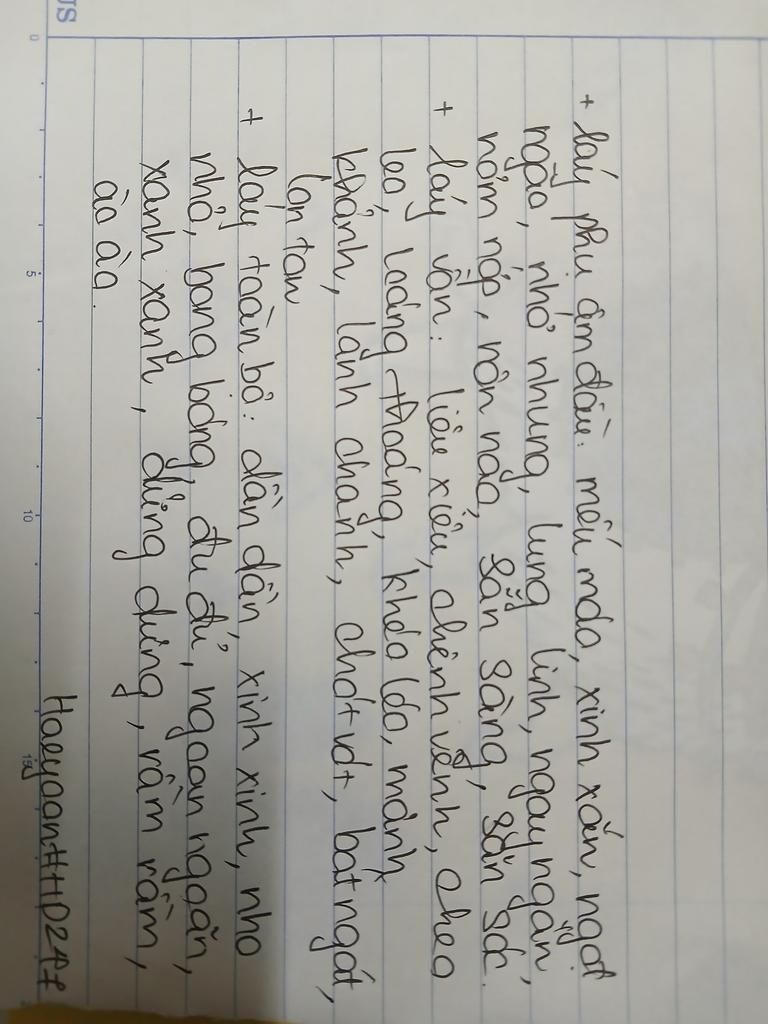 + láy phụ âm đầu: mếu máo, xinh xắn, ngọt
ngào, nhỏ nhung, lung linh, ngay ngắn,
nơm nớp, nôn nao, sẵn sàng, săn sóc.
+ láy vần: liêu xiêu, chênh vênh, cheo
leo, loáng thoáng, khéo léo, mảnh
khảnh, lanh chanh, chót vót, bát ngát,
lon ton
+ láy toàn bộ: dần dần, xinh xinh, nho
nhỏ, bong bóng, đu đủ, ngoan ngoãn,
xanh xanh, dửng dưng, rầm rầm,
ào ào.